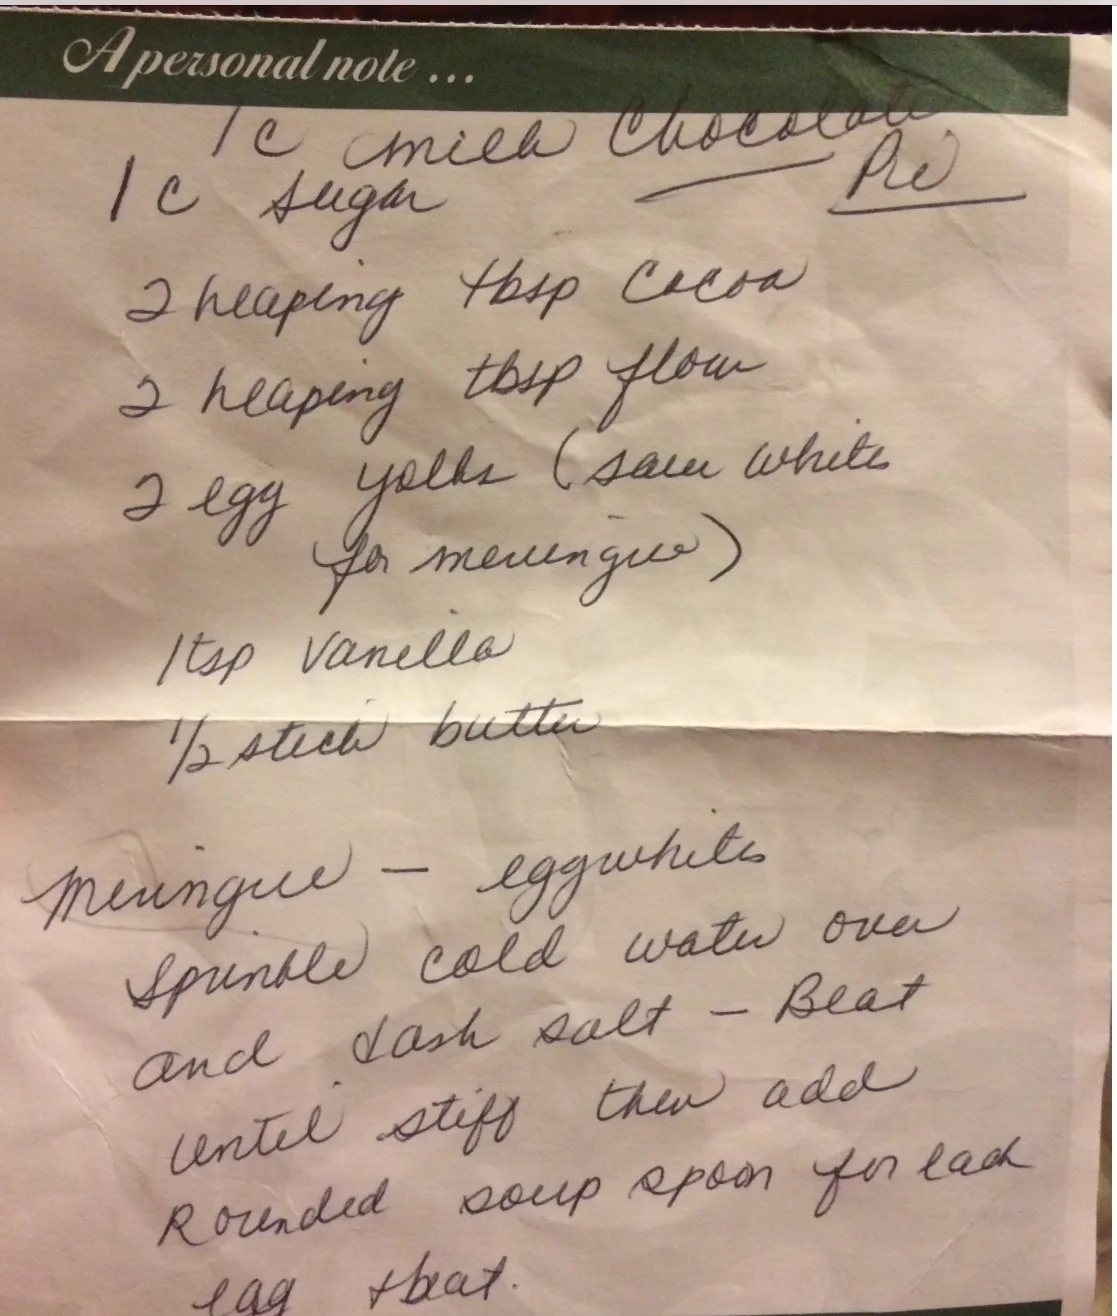 A personal note ...
1 c milk Chocolate
Pie
1 c sugar
2 heaping tbsp Cocoa
2 heaping tbsp flour
2 egy yolks (save whites
for meringue)
1 tsp Vanilla
1/2 stick butter
Meringue — eggwhites
Sprinkle cold water over
and dash salt — Beat
until stiff then add
Rounded soup spoon for each
egg + beat.